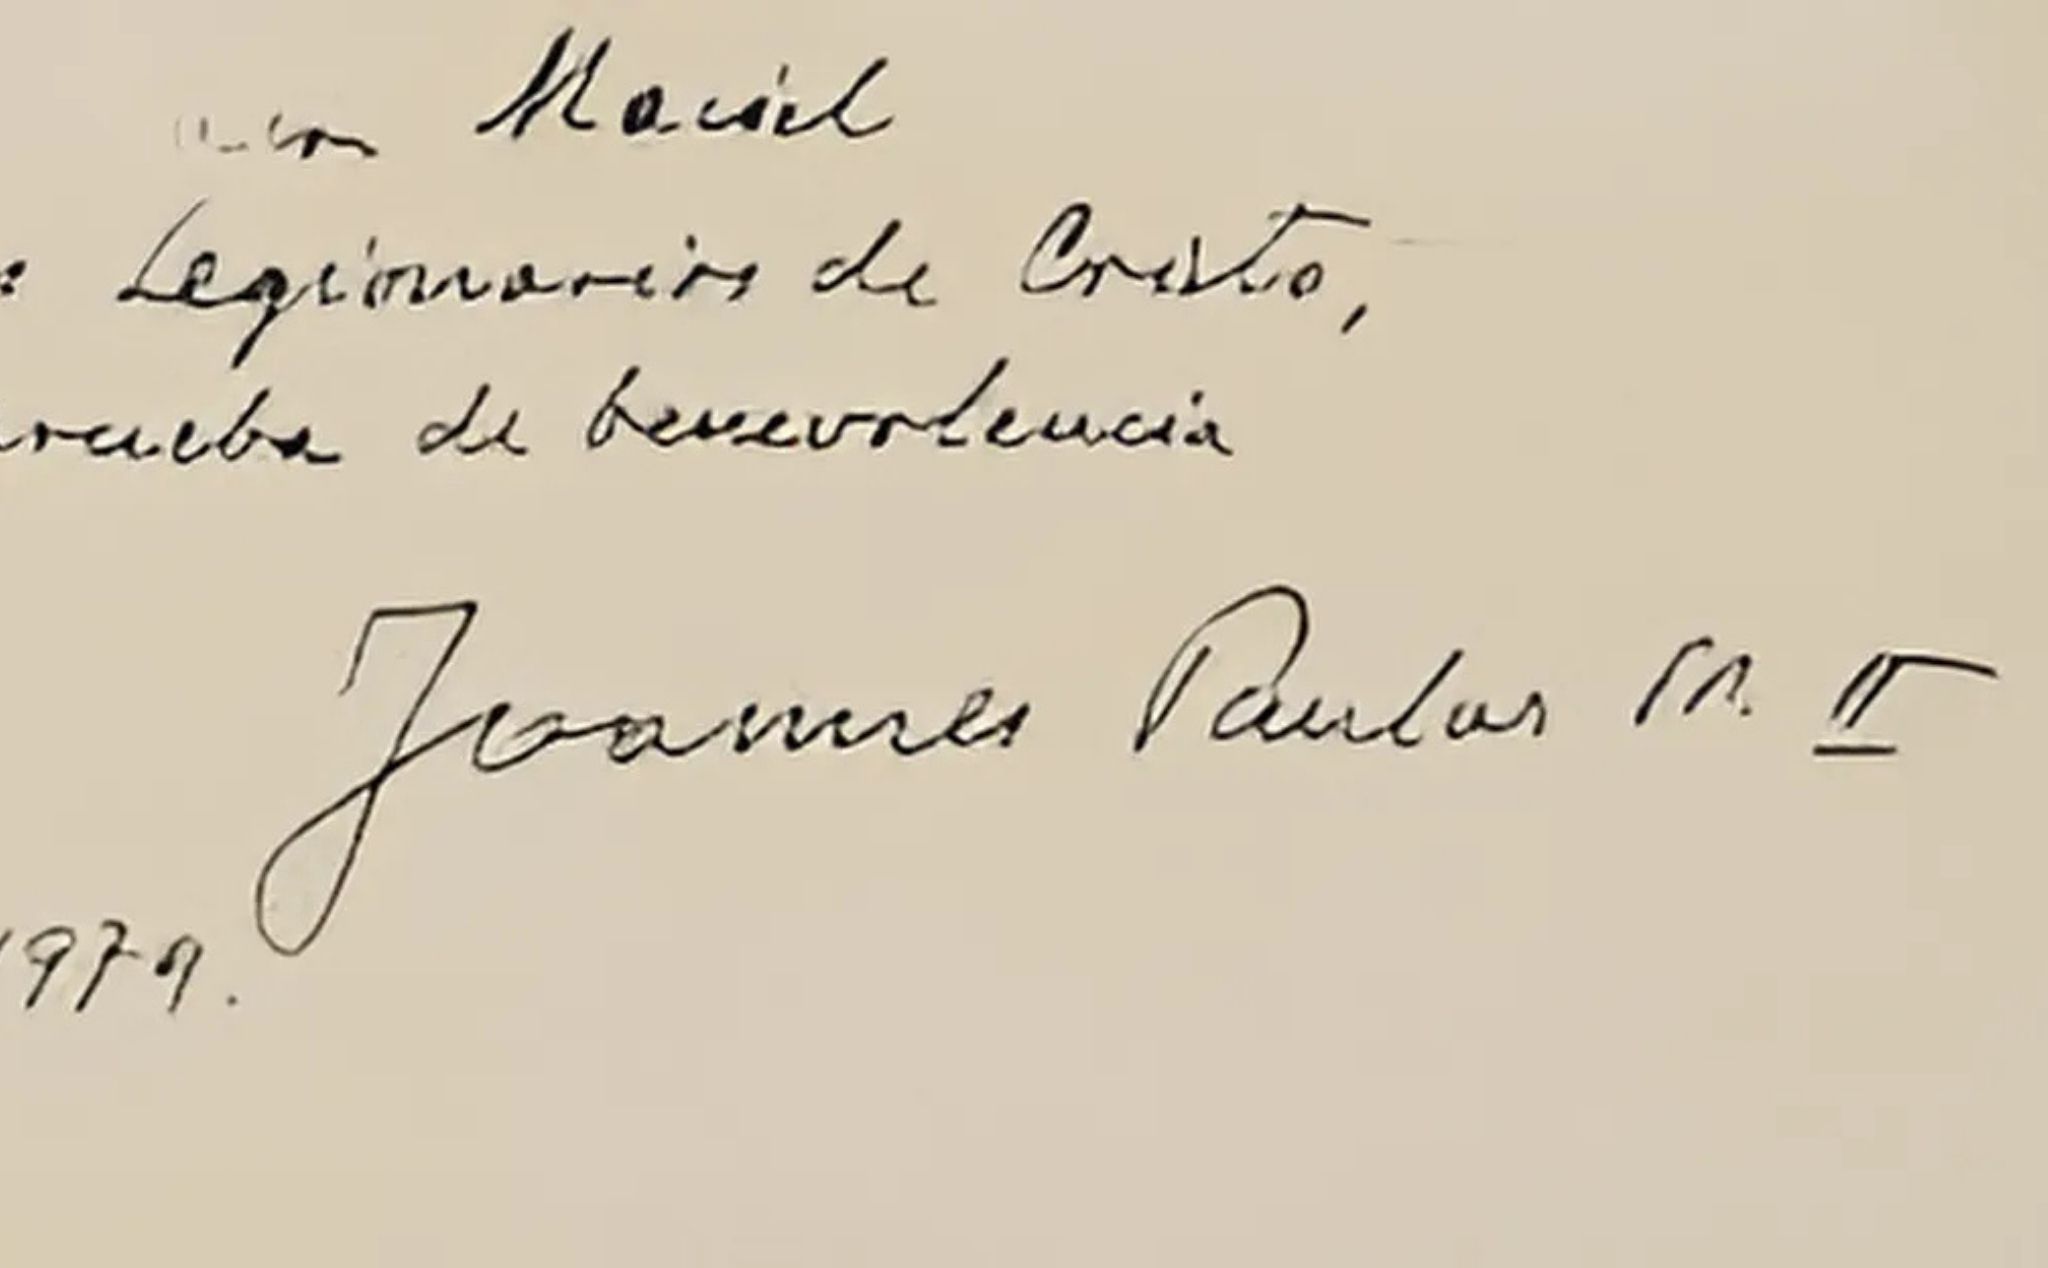 Maciel
Legionarios de Cristo,
prueba de benevolencia
Joannes Paulus PP. II
1979.